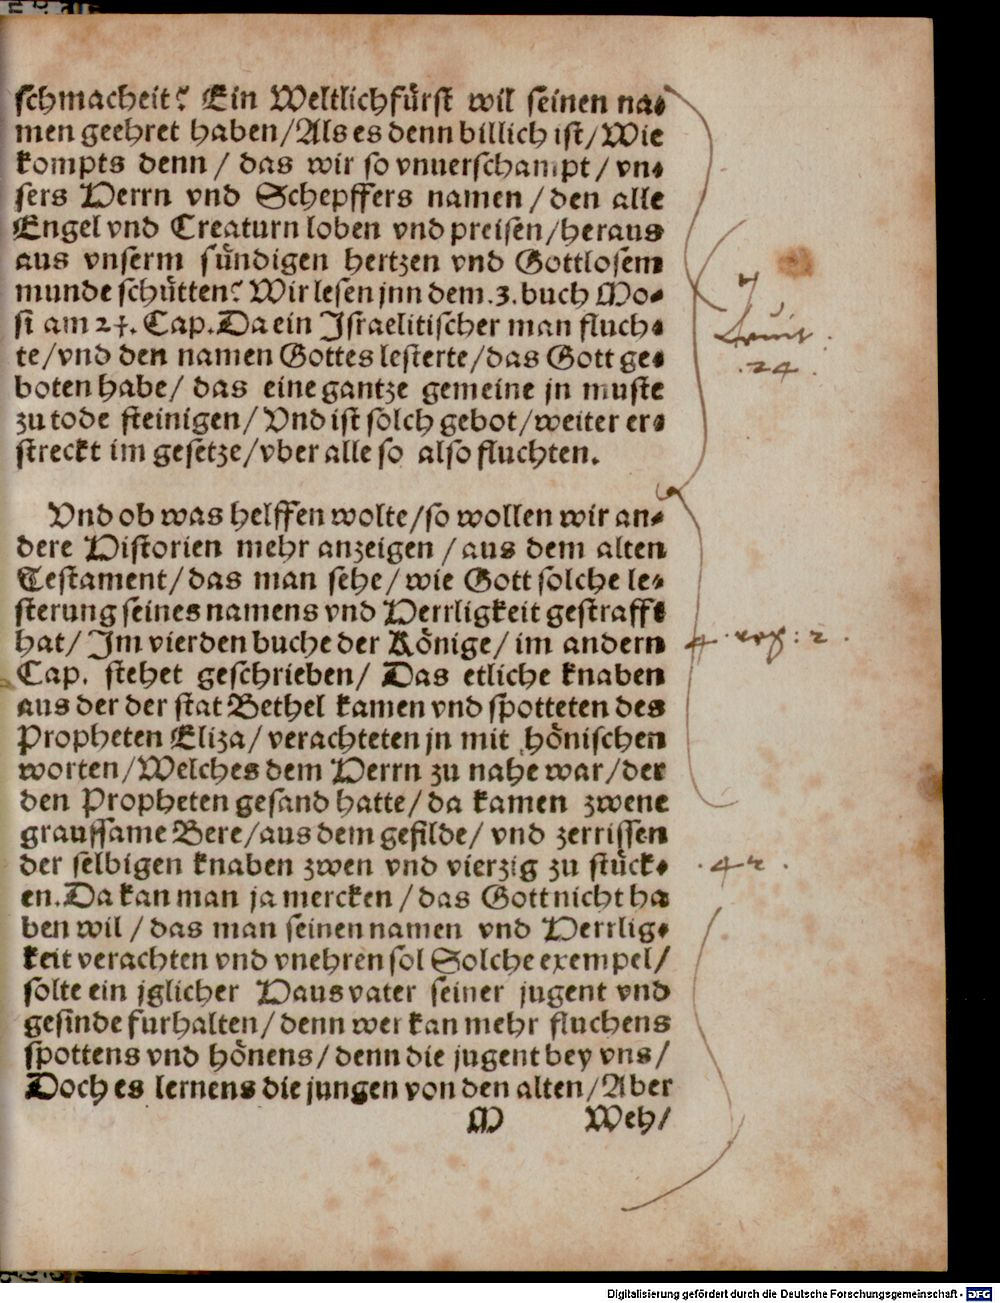 schmacheit? Ein Weltlichfürst wil seinen na⸗
men geehret haben/Als es denn billich ist/Wie
kompts denn / das wir so vnuerschampt/ vn⸗
sers Herrn vnd Schepffers namen /den alle
Engel vnd Creaturn loben vnd preisen/heraus
aus vnserm sündigen hertzen vnd Gottlosem
munde schütten? Wir lesen jnn dem .3. buch Mo⸗
si am 24. Cap. Da ein Israelitischer man fluch⸗
te/vnd den namen Gottes lesterte/das Gott ge⸗
boten habe/ das eine gantze gemeine jn muste
zu tode steinigen/ Vnd ist solch gebot/weiter er⸗
streckt im gesetze/vber alle so also fluchten.
Vnd ob was helffen wolte/so wollen wir an⸗
dere Historien mehr anzeigen /aus dem alten
Testament/das man sehe/ wie Gott solche le⸗
sterung seines namens vnd Herrligkeit gestrafft
hat/ Im vierden buche der Könige/ im andern
Cap. stehet geschrieben/ Das etliche knaben
aus der der stat Bethel kamen vnd spotteten des
Propheten Eliza/ verachteten jn mit hönischen
worten/Welches dem Herrn zu nahe war/der
den Propheten gesand hatte/da kamen zwene
graussame Bere/aus dem gefilde/ vnd zerrissen
der selbigen knaben zwen vnd vierzig zu stück⸗
en. Da kan man ja mercken /das Gott nicht ha
ben wil /das man seinen namen vnd Herrlig⸗
keit verachten vnd vnehren sol Solche exempel/
solte ein jglicher Hausvater seiner jugent vnd
gesinde furhalten/denn wer kan mehr fluchens
spottens vnd hönens/denn die jugent bey vns/
Doch es lernens die jungen von den alten/Aber
M Weh/
Leuit.
.24.
4. reg: 2.
.42.
Digitalisierung gefördert durch die Deutsche Forschungsgemeinschaft - DFG